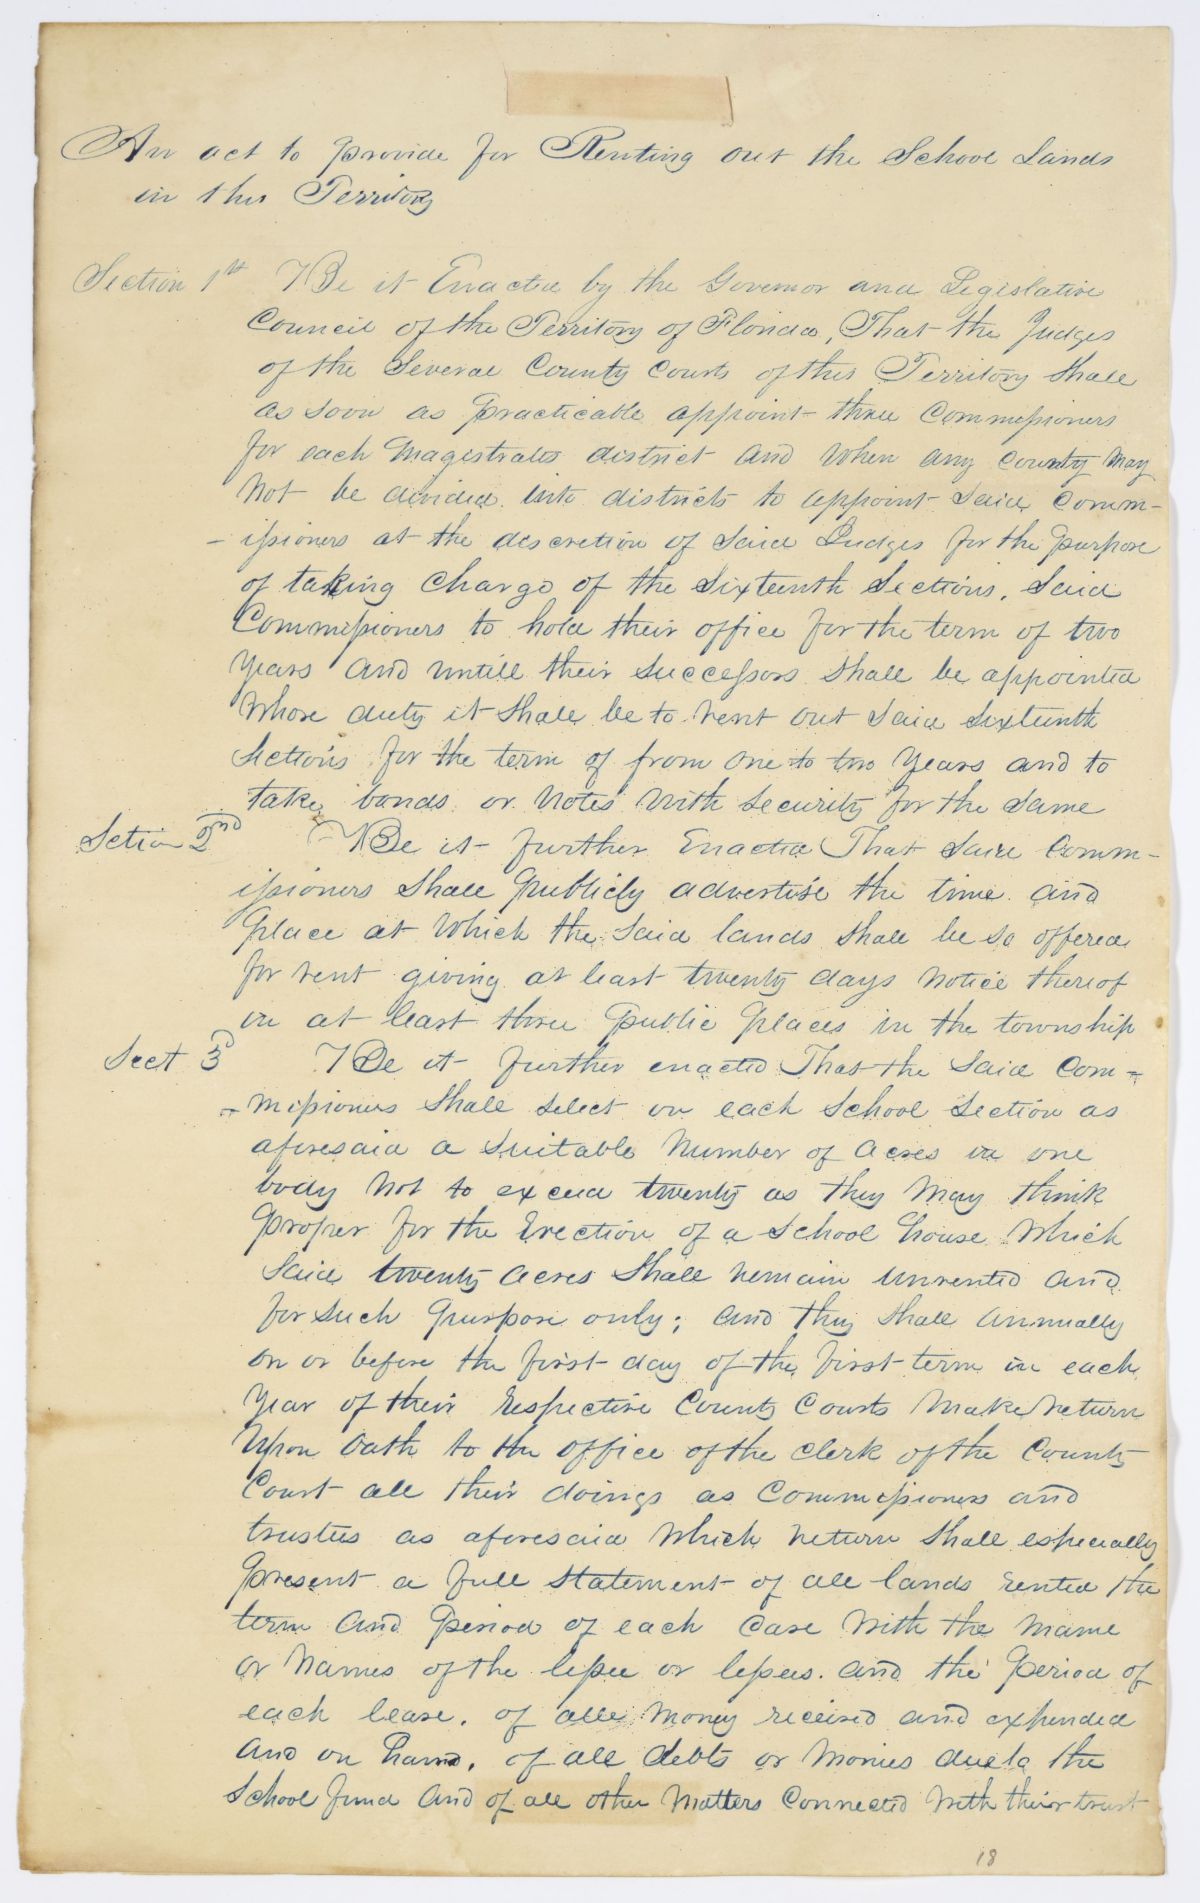 An act to provide for Renting out the School Lands
in this Territory
Section 1st Be it Enacted by the Governor and Legislative
Council of the Territory of Florida, That the Judges
of the Several County Courts of this Territory Shall
as soon as practicable appoint three Commissioners
for each Magistrates district and When any County May
Not be divided into districts to appoint Said Comm-
-issioners at the discretion of Said Judges for the purpose
of taking Charge of the Sixteenth Sections, Said
Commissioners to hold their office for the term of two
Years and untill their Successors Shall be appointed
Whose duty it Shall be to rent out Said Sixteenth
Sections for the term of from one to two Years and to
take bonds or Notes With Security for the Same
Section 2nd Be it further Enacted That Said Comm-
issioners Shall publicly advertise the time and
place at Which the Said lands Shall be So offered
for rent giving at least twenty days Notice thereof
in at least three public places in the township
Sect 3d Be it further enacted That the Said Com-
-missioners Shall Select on each School Section as
aforesaid a Suitable Number of acres in one
body Not to exceed twenty as they May think
proper for the Erection of a School house Which
Said twenty acres Shall remain Unrented and
for Such purpose only; and they Shall annually
on or before the first day of the first term in each
Year of their respective County Courts Make return
Upon Oath to the office of the Clerk of the County
Court all their doings as Commissioners and
trustees as aforesaid Which return Shall especially
present a full Statement of all lands rented the
term and period of each Case With the Name
or Names of the lessee or lessees and the period of
each lease, of all Money received and expended
and on hand, of all debts or Monies due to the
School fund and of all other Matters Connected With their trust
18